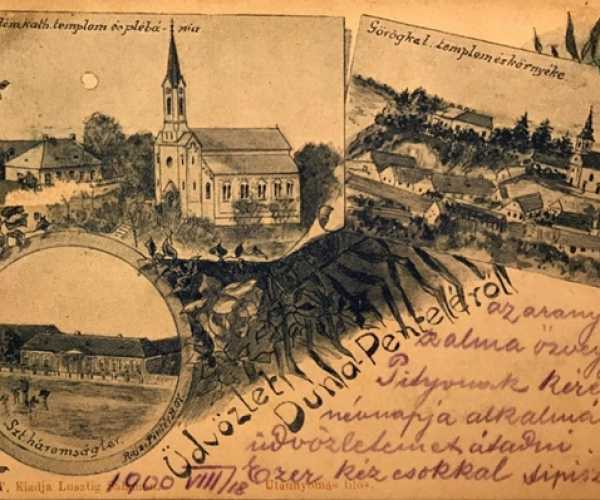 Róm. kath. templom és plébánia
Görögkel. templom és környéke
Szt. háromságtér.
Üdvözlet
Duna-Penteléről
az arany
alma özvegy
Pityunak
névnapja alkalmá
üdvözletemet átadni
Ezer kézcsókkal
1900 VIII/18
Kiadja Lusztig
Utánnyomás tilos.